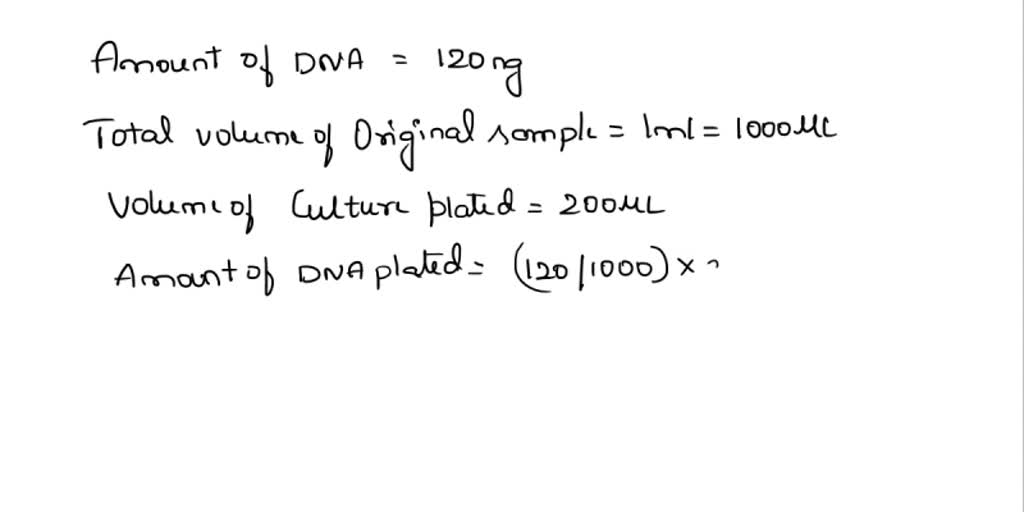 Amount of DNA = 120 ng
Total volume of Original sample = 1ml = 1000 ML
Volume of Culture plated = 200 ML
Amount of DNA plated = (120/1000) x